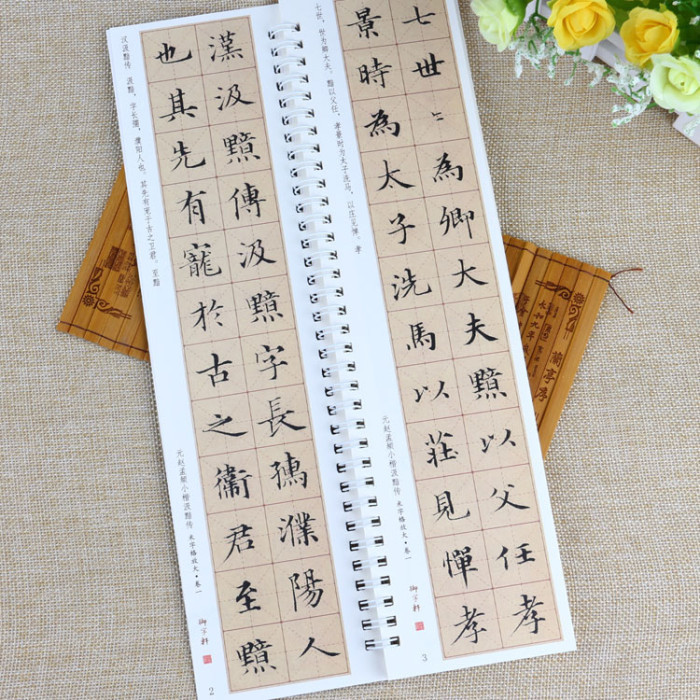 漢汲黯傳汲黯字長孺濮陽人
也其先有寵於古之衛君至黯
汉汲黯传 汲黯，字长孺，濮阳人也。其先有宠于古之卫君。至黯
元赵孟頫小楷汲黯传 米字格放大·卷一
2
七世〻為卿大夫黯以父任孝
景時為太子洗馬以莊見憚孝
七世，世为卿大夫。黯以父任，孝景时为太子洗马，以庄见惮。孝
元赵孟頫小楷汲黯传 米字格放大·卷一
3
蘭亭序
永和九年